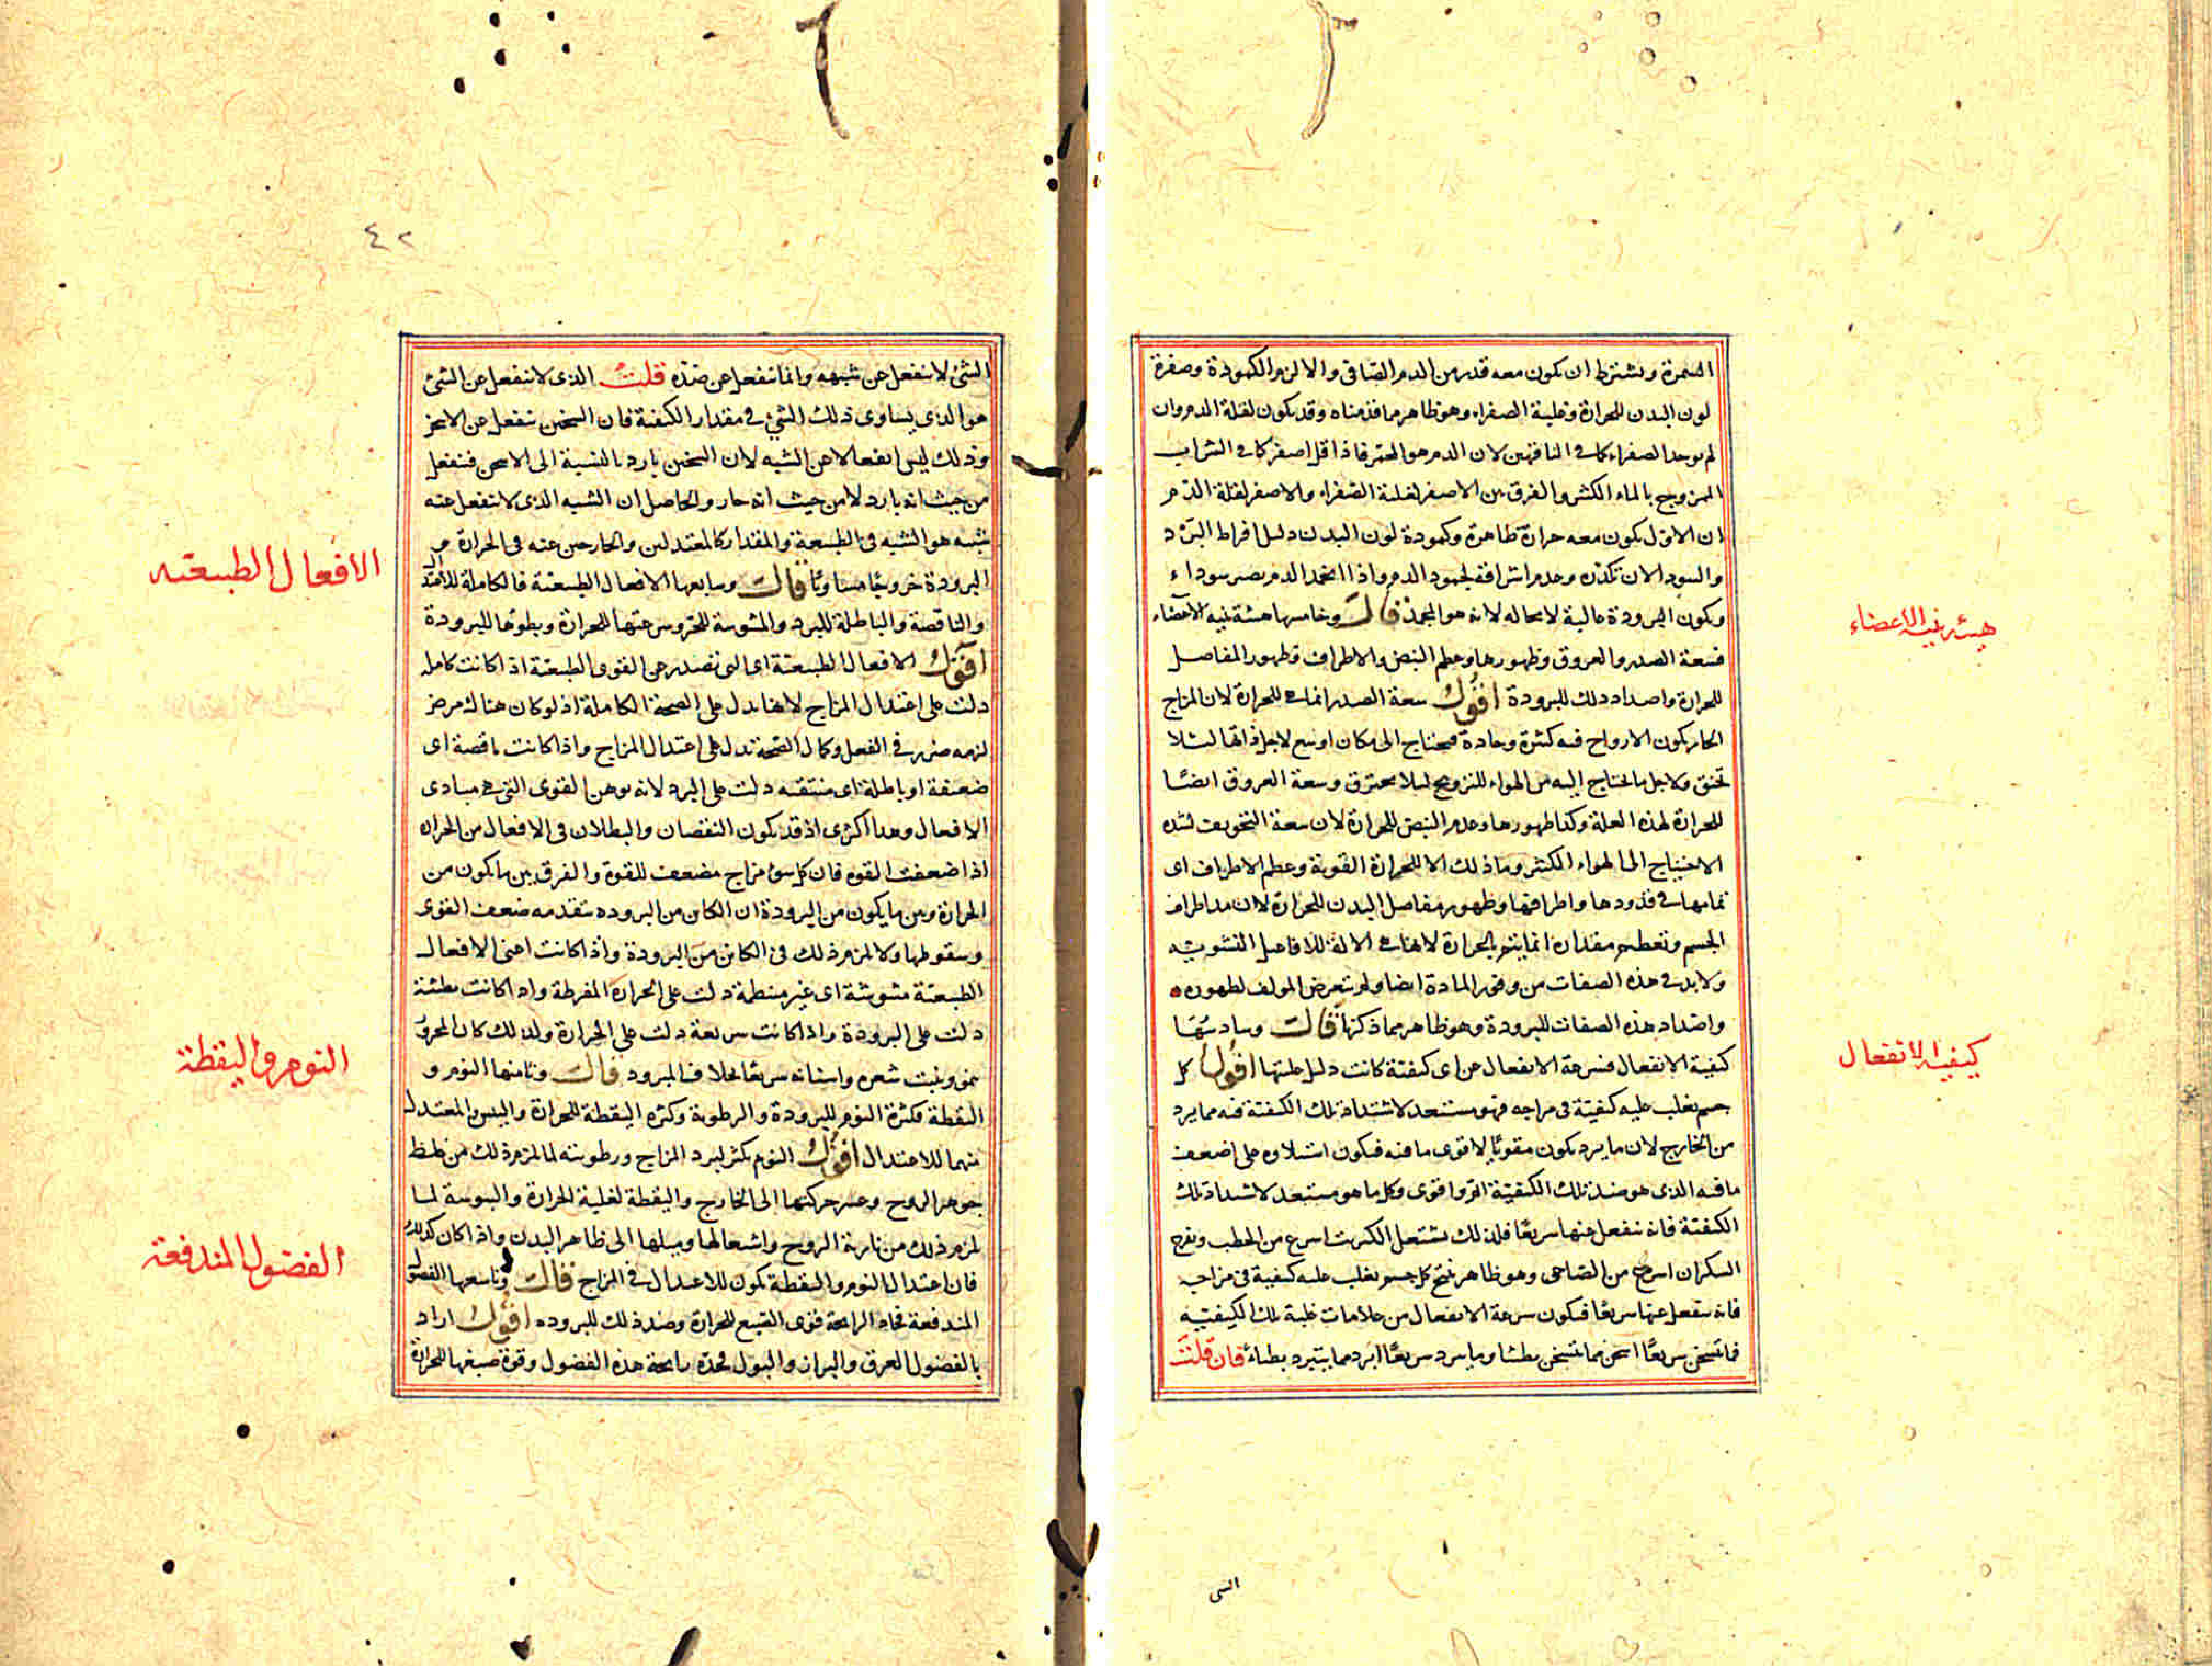 السمرة ويشترط ان يكون معه قدر من الدم الصافى والا لزم الكمودة وصفرة
لون البدن للحرارة وغلبة الصفراء وهو ظاهر مما قدمناه وقد يكون لقلة الدم وان
لم يوجد الصفراء كما فى الناقهين لان الدم هو المحمر فاذا قل اصفر كما فى الشراب
الممزوج بالماء الكثير والفرق بين الاصفر لغلبة الصفراء والاصفر لقلة الدم
ان الاول يكون معه حرارة ظاهرة وكمودة لون البدن دليل افراط البرد
والسودا لان تكدره وعدم اشراقه لجمود الدم واذا انجمد الدم يصير سوداء
ويكون البرودة غالبة لا محاله لانه هو المجمد قال وخامسها هيئة بنية الاعضاء
هيئة بنية الاعضاء
فسعة الصدر والعروق وظهورها وعظم النبض والاطراف وظهور المفاصل
للحرارة واضداد ذلك للبرودة اقول سعة الصدر انما هى للحرارة لان المزاج
الحار يكون الارواح فيه كثيرة وحادة فيحتاج الى مكان اوسع لاجل ذاتها لئلا
تختنق ولاجل ما يحتاج اليه من الهواء للترويح لئلا يحترق وسعة العروق ايضًا
للحرارة لهذه العلة وكذا ظهورها وعظم النبض للحرارة لان سعة التجويف لشده
الاحتياج الى الهواء الكثير وما ذلك الا للحرارة القوية وعظم الاطراف اى
تمامها فى قدودها واطرافها وظهور مفاصل البدن للحرارة لان مد اطراف
الجسم وتعظيم مقداره انما يتم بالحرارة لانها هى الالة للافاعيل النشويه
ولا بد فى هذه الصفات من وفور المادة ايضا ولم يتعرض المولف لظهوره
واضداد هذه الصفات للبرودة وهو ظاهر مما ذكرنا قال وسادسُهَا
كيفية الانفعال فسرعة الانفعال عن اى كيفية كانت دليل غلبتها اقول كل
كيفية الانفعال
جسم يغلب عليه كيفية فى مزاجه فهو مستعد لاشتداد تلك الكيفية فيه مما يرد
من الخارج لان ما يرد يكون مقويًا لاقوى ما فيه فيكون استيلاوه على اضعف
ما فيه الذى هو ضد تلك الكيفية اتم واقوى وكل ما هو مستعد لاشتداد تلك
الكيفية فانه ينفعل عنها سريعًا فلذلك يشتعل الكبريت اسرع من الحطب ويفرح
السكران اسرع من الصاحى وهو ظاهر نتج كل جسم يغلب عليه كيفية فى مزاجه
فانه ينفعل عنها سريعًا فيكون سرعة الانفعال من علامات غلبة تلك الكيفيّه
فما تسخن سريعًا اسخن مما تسخن بطئا وما يبرد سريعًا ابرد مما يتبرد بطئاً فان قلت
الشى
٤٢
الشئ لا ينفعل عن شبهه وانما ينفعل عن ضده قلت الذى لا ينفعل عن الشئ
هو الذى يساوى ذلك الشئ فى مقدار الكيفية فان السخين ينفعل عن الاسخن
وذلك ليس انفعالا عن الشبه لان السخين بارد بالنسبة الى الاسخن فينفعل
من حيث انه بارد لا من حيث انه حار والحاصل ان الشبه الذى لا ينفعل عنه
شبهه هو الشبه فى الطبيعة والمقدار كالمعتدلين والخارجين عنه فى الحرارة و
الافعال الطبيعيه
البرودة خروجًا متساويًا قال وسابعها الافعال الطبيعية فالكاملة للاعتدال
والناقصة والباطلة للبرد والمشوشة للحر وسرعتها للحرارة وبطؤها للبرودة
اقول الافعال الطبيعية اى التى تصدر عن القوى الطبيعية اذا كانت كامله
دلت على اعتدال المزاج لانها يدل على الصحة الكاملة اذ لو كان هناك مرض
لزمه ضرر فى الفعل وكمال الصحة تدل على اعتدال المزاج واذا كانت ناقصة اى
ضعيفة او باطلة اى منتفيه دلت على البرد لانه يوهن القوى التى هى مبادى
الافعال وهذا اكثرى اذ قد يكون النقصان والبطلان فى الافعال من الحراره
اذا ضعفت القوه فان كل سوء مزاج مضعف للقوة والفرق بين ما يكون من
الحرارة وبين ما يكون من البرودة ان الكاين من البروده يتقدمه ضعف القوى
وسقوطها ولا يلزم ذلك فى الكاين من البرودة واذا كانت اعنى الافعال
الطبيعية مشوشة اى غير منتظمة دلت على الحرارة المفرطة واذا كانت بطئية
دلت على البرودة واذا كانت سريعة دلت على الحرارة ولذلك كان المحرور
ينمو وينبت شعره واسنانه سريعًا بخلاف المبرود قال وثامنها النوم و
النوم واليقظة
اليقظة فكثرة النوم للبرودة والرطوبة وكثره اليقظة للحرارة واليبس والمعتدل
منهما للاعتدال اقول النوم يكثر لبرد المزاج ورطوبته لما يلزم ذلك من غلظ
جوهر الروح وعسر حركتها الى الخارج واليقظة لغلبة الحرارة واليبوسة لما
يلزم ذلك من نارية الروح واشعالها وميلها الى ظاهر البدن واذا كان كذلك
الفضول المندفعة
فان اعتدال النوم واليقظة يكون للاعتدال فى المزاج قال وتاسعها الفضول
المندفعة فحاد الرائحة قوى الصبغ للحرارة وضد ذلك للبروده اقول اراد
بالفضول العرق والبراز والبول فحدّه رائحة هذه الفضول وقوة صبغها للحرارة